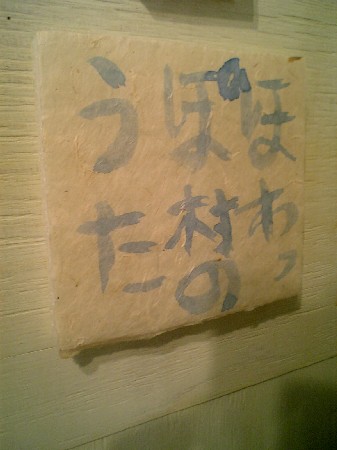 ほわっ
ぽぽ村の
うた